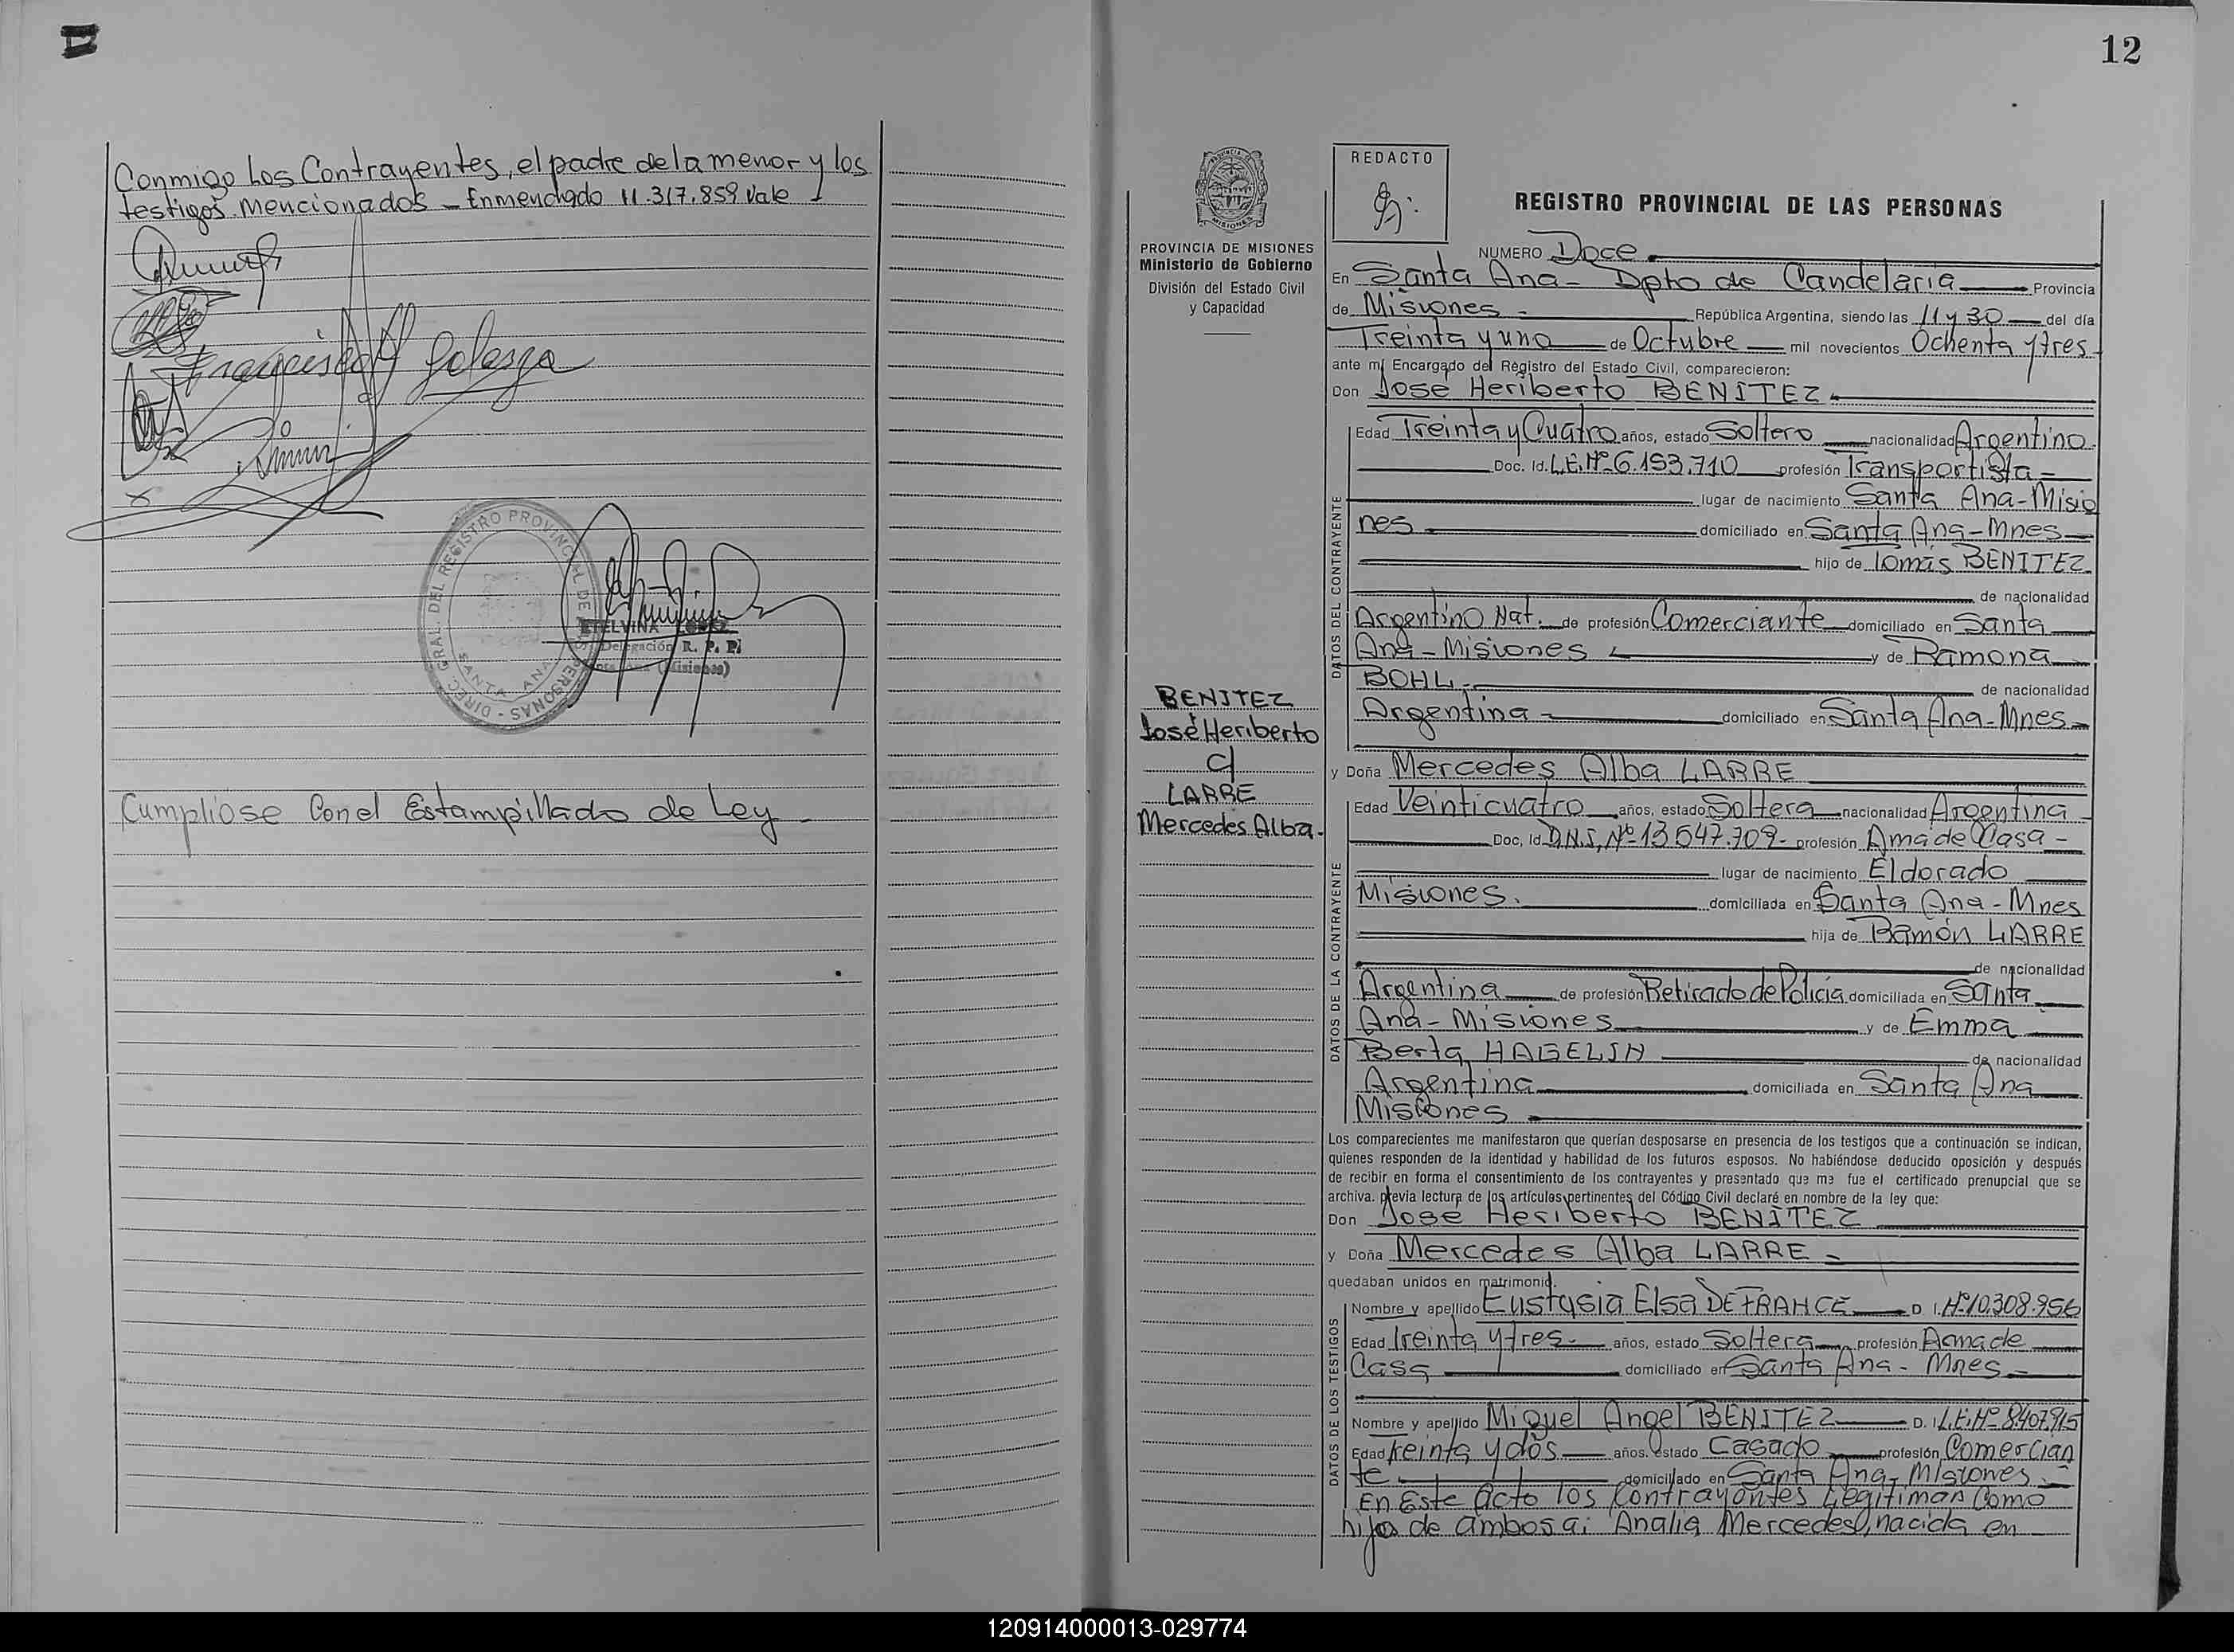 Conmigo Los Contrayentes, el padre de la menor y los
testigos Mencionados - Enmendado 11.317.859 Vale
Francisco
DIREC. GRAL. DEL REGISTRO PROVINCIAL DE LAS PERSONAS -
SANTA ANA
ETELVINA
Delegación R. P. P.
(Misiones)
Cumpliose Con el Estampillado de Ley
12
PROVINCIA DE MISIONES
Ministerio de Gobierno
División del Estado Civil
y Capacidad
BENITEZ
José Heriberto
c/
LARRE
Mercedes Alba.
REDACTO
REGISTRO PROVINCIAL DE LAS PERSONAS
NUMERO Doce
En Santa Ana - Dpto de Candelaria Provincia
de Misiones - República Argentina, siendo las 11 y 30 del día
Treinta y uno de Octubre mil novecientos Ochenta y tres
ante mí Encargado del Registro del Estado Civil, comparecieron:
Don José Heriberto BENITEZ
DATOS DEL CONTRAYENTE
Edad Treinta y Cuatro años, estado Soltero nacionalidad Argentino
Doc. Id. L.E. Nº 6.153.710 profesión Transportista -
lugar de nacimiento Santa Ana - Misio
nes domiciliado en Santa Ana - Mnes
hijo de Tomás BENITEZ
de nacionalidad
Argentino Nat. de profesión Comerciante domiciliado en Santa
Ana - Misiones y de Ramona
BOHL - de nacionalidad
Argentina - domiciliado en Santa Ana - Mnes
y Doña Mercedes Alba LARRE
DATOS DE LA CONTRAYENTE
Edad Veinticuatro años, estado Soltera nacionalidad Argentina
Doc, Id. D.N.I, Nº 13 547.709 - profesión Ama de Casa -
lugar de nacimiento Eldorado
Misiones. domiciliada en Santa Ana - Mnes
hija de Ramón LARRE
de nacionalidad
Argentina de profesión Retirado de Policía domiciliada en Santa
Ana - Misiones y de Emma
Berta HAGELIN de nacionalidad
Argentina domiciliada en Santa Ana
Misiones
Los comparecientes me manifestaron que querían desposarse en presencia de los testigos que a continuación se indican,
quienes responden de la identidad y habilidad de los futuros esposos. No habiéndose deducido oposición y después
de recibir en forma el consentimiento de los contrayentes y presentado que me fue el certificado prenupcial que se
archiva. previa lectura de los artículos pertinentes del Código Civil declaré en nombre de la ley que:
Don José Heriberto BENITEZ
y Doña Mercedes Alba LARRE -
quedaban unidos en matrimonio.
DATOS DE LOS TESTIGOS
Nombre y apellido Eustasia Elsa DEFRANCE D. I. Nº 10.308.956
Edad treinta y tres - años, estado Soltera profesión Ama de
Casa domiciliado en Santa Ana - Mnes -
Nombre y apellido Miguel Angel BENITEZ D. I L.E. Nº 8.407.915
Edad treinta y dos años. estado Casado profesión Comercian
te domiciliado en Santa Ana - Misiones -
En Este Acto los Contrayentes Legitiman Como
hija de ambos a: Analia Mercedes, nacida en
120914000013-029774